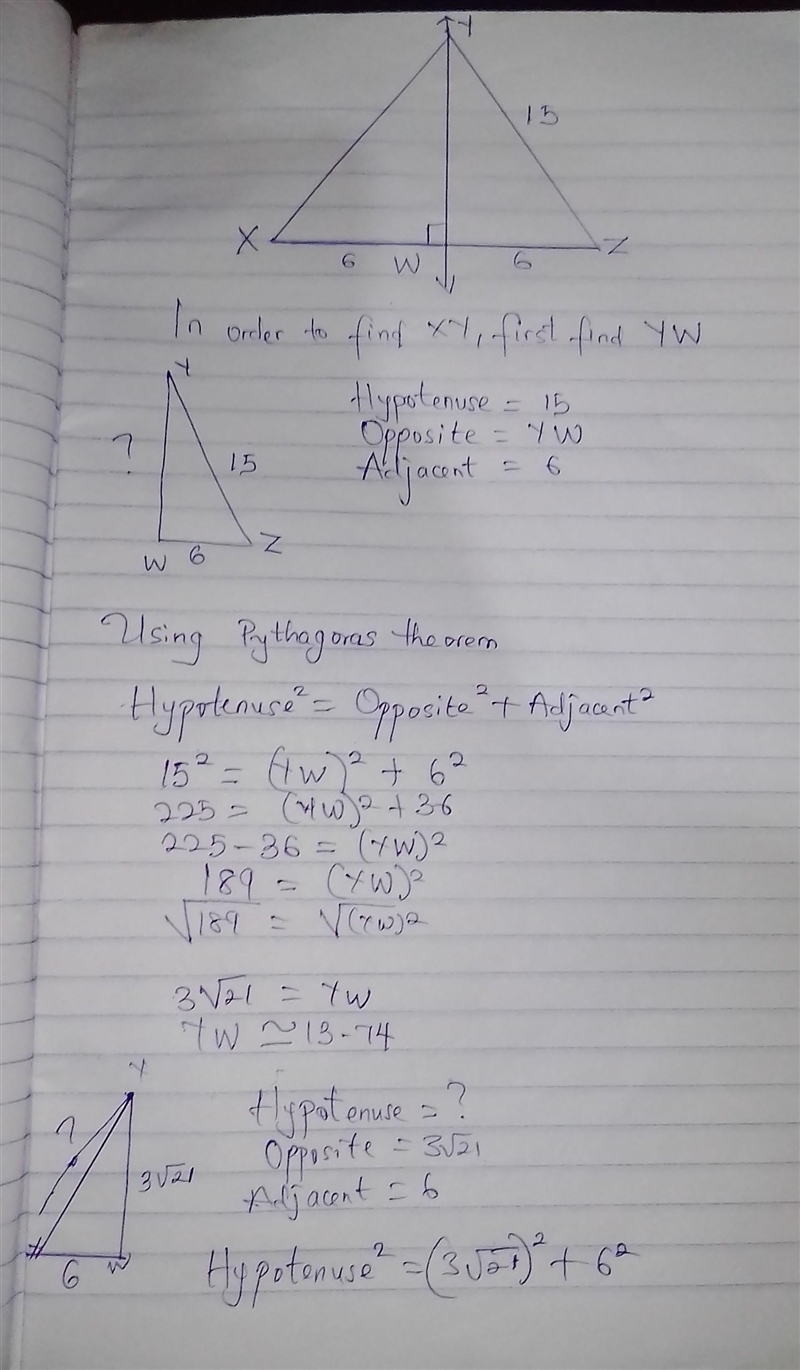 Y
15
X
6
W
6
Z
In order to find XY, first find YW
Y
Hypotenuse = 15
Opposite = YW
?
15
Adjacent = 6
W
6
Z
Using Pythagoras theorem
Hypotenuse² = Opposite² + Adjacent²
15² = (YW)² + 6²
225 = (YW)² + 36
225 - 36 = (YW)²
189 = (YW)²
√189 = √(YW)²
3√21 = YW
YW ≃ 13.74
Y
Hypotenuse = ?
?
Opposite = 3√21
3√21
Adjacent = 6
X
6
W
Hypotenuse² = (3√21)² + 6²